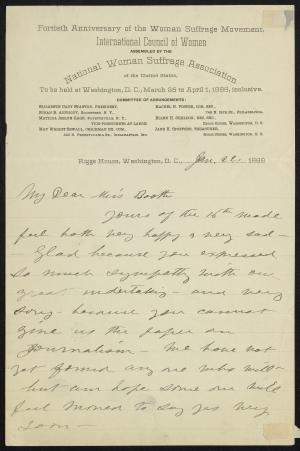 Fortieth Anniversary of the Woman Suffrage Movement.
International Council of Women
ASSEMBLED BY THE
National Woman Suffrage Association
of the United States,
To be held at Washington, D. C., March 25 to April 1, 1888, inclusive.
COMMITTEE OF ARRANGEMENTS:
ELIZABETH CADY STANTON, PRESIDENT.
SUSAN B. ANTHONY, ROCHESTER, N. Y.
MATILDA JOSLYN GAGE, FAYETTEVILLE, N. Y.
VICE-PRESIDENTS AT LARGE.
MAY WRIGHT SEWALL, CHAIRMAN EX. COM.,
PENNSYLVANIA ST., INDIANAPOLIS, IND.
RACHEL G. FOSTER, COR. SEC.,
PHILADELPHIA.
ELLEN H. SHELDON, REC. SEC.,
WASHINGTON, D. C.
JANE H. SPOFFORD, TREASURER,
RIGGS HOUSE, WASHINGTON, D. C.
Riggs House, Washington, D. C., Jan. 22. 1888
My Dear Miss Booth
Yours of the 16th made
feel both very happy & very sad –
– Glad because you expressed
so much sympathy with our
great undertaking – and very
sorry – because you cannot
give us the paper on
Journalism – We have not
yet found any one who will –
but am hope some one will
feel moved to say yes very
soon –